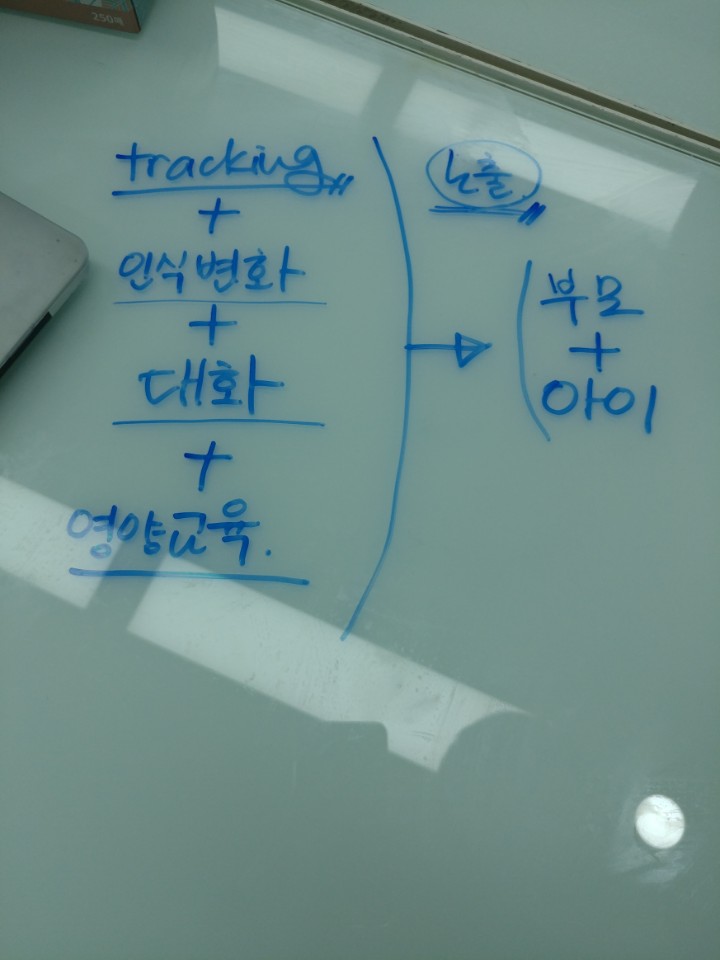 250매
tracking
+
인식변화
+
대화
+
영양교육.
노출
부모
+
아이